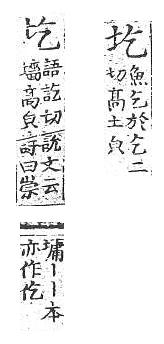 圪魚乞於乞二
切髙土皃
圪語訖切說文云
墻髙皃詩曰崇
墉丨丨本
亦作仡